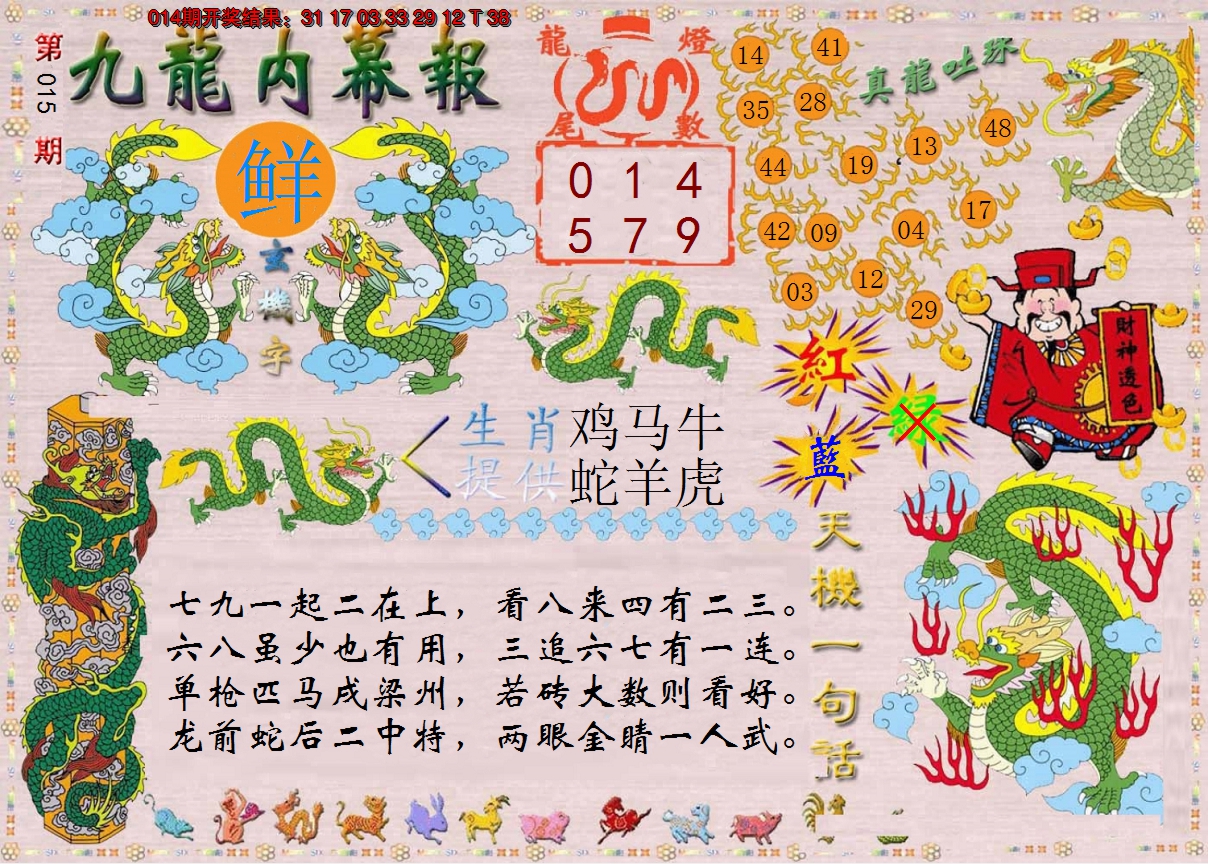 014期开奖结果：31 17 03 33 29 12 T 38
第015期
九龍内幕報
鲜
玄機字
龍燈
尾數
0 1 4
5 7 9
真龍吐珠
14
41
35
28
48
13
44
19
17
42
09
04
12
03
29
財神透色
紅
绿
藍
生肖 鸡马牛
提供 蛇羊虎
天機一句話
七九一起二在上，看八来四有二三。
六八虽少也有用，三追六七有一连。
单枪匹马戌梁州，若砖大数则看好。
龙前蛇后二中特，两眼金睛一人武。